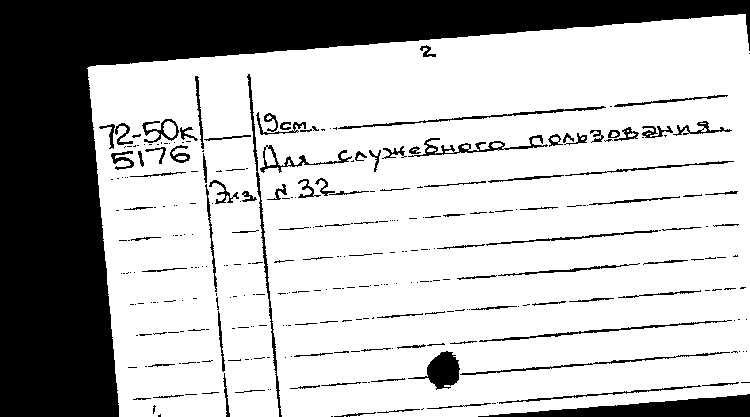 2
72-50к 19см.
5176 Для служебного пользования.
Экз. № 32.